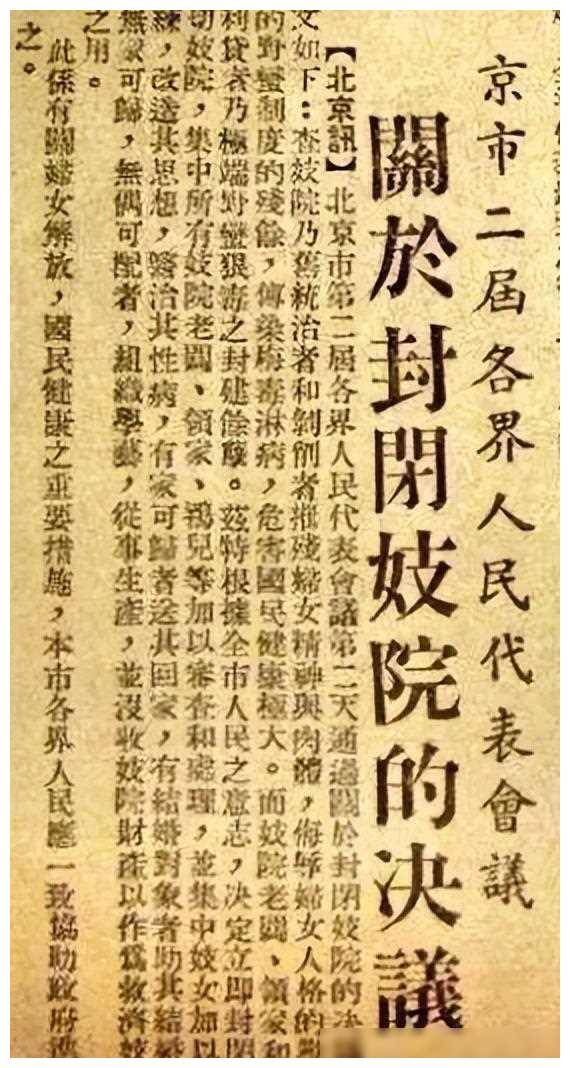 京市二屆各界人民代表會議
關於封閉妓院的決議
【北京訊】北京市第二屆各界人民代表會議第二天通過關於封閉妓院的決
文如下：查妓院乃舊統治者和剝削者摧殘婦女精神與肉體，侮辱婦女人格的
的野蠻制度的殘餘，傳染梅毒淋病，危害國民健康極大。而妓院老闆、領家和
利貸者乃極端野蠻狠毒之封建餘孽。茲特根據全市人民之意志，決定立即封閉
切妓院，集中所有妓院老闆、領家、鴇兒等加以審查和處理，並集中妓女加以
練，改造其思想，醫治其性病，有家可歸者送其回家，有結婚對象者助其結婚
無家可歸，無偶可配者，組織學藝，從事生產，並沒收妓院財產以作為救濟妓
之用。
此係有關婦女解放，國民健康之重要措施，本市各界人民應一致協助政府
之。